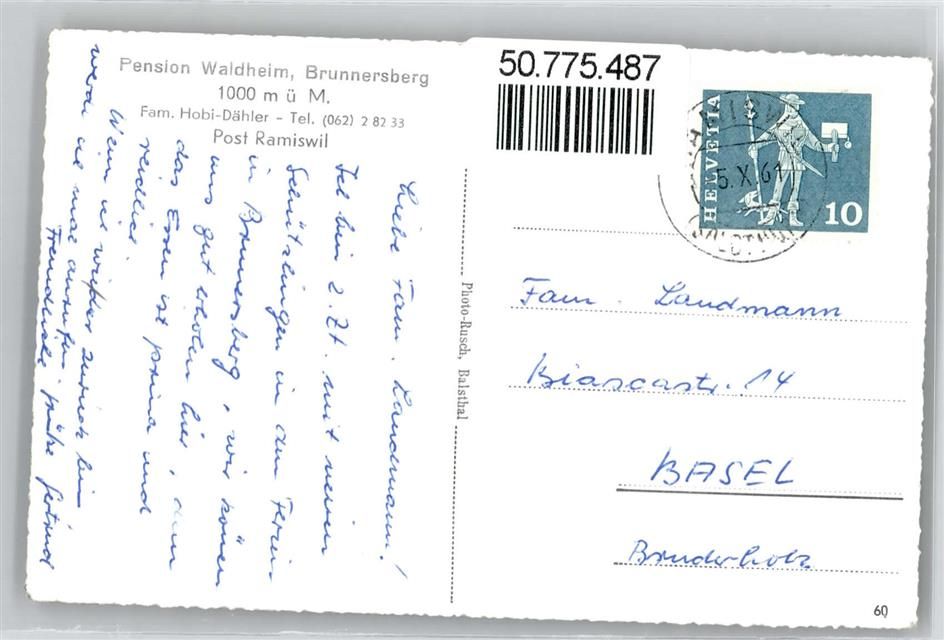 Pension Waldheim, Brunnersberg
1000 m ü M.
Fam. Hobi-Dähler - Tel. (062) 2 82 33
Post Ramiswil
50.775.487
HELVETIA
10
5.X.61
SOLOTHURN
Liebe Fam. Landmann!
Ich bin z. Zt. mit meinen
Schützlingen in den Ferien
in Brunnersberg, wir können
uns gut erholen hier, denn
das Essen ist prima und
reichlich.
Wenn ich wieder zurück bin
werde ich mal anrufen.
Freundliche Grüsse Gertrud
Photo-Rusch, Balsthal
Fam. Landmann
Biascastr. 14
BASEL
Bruderholz
60